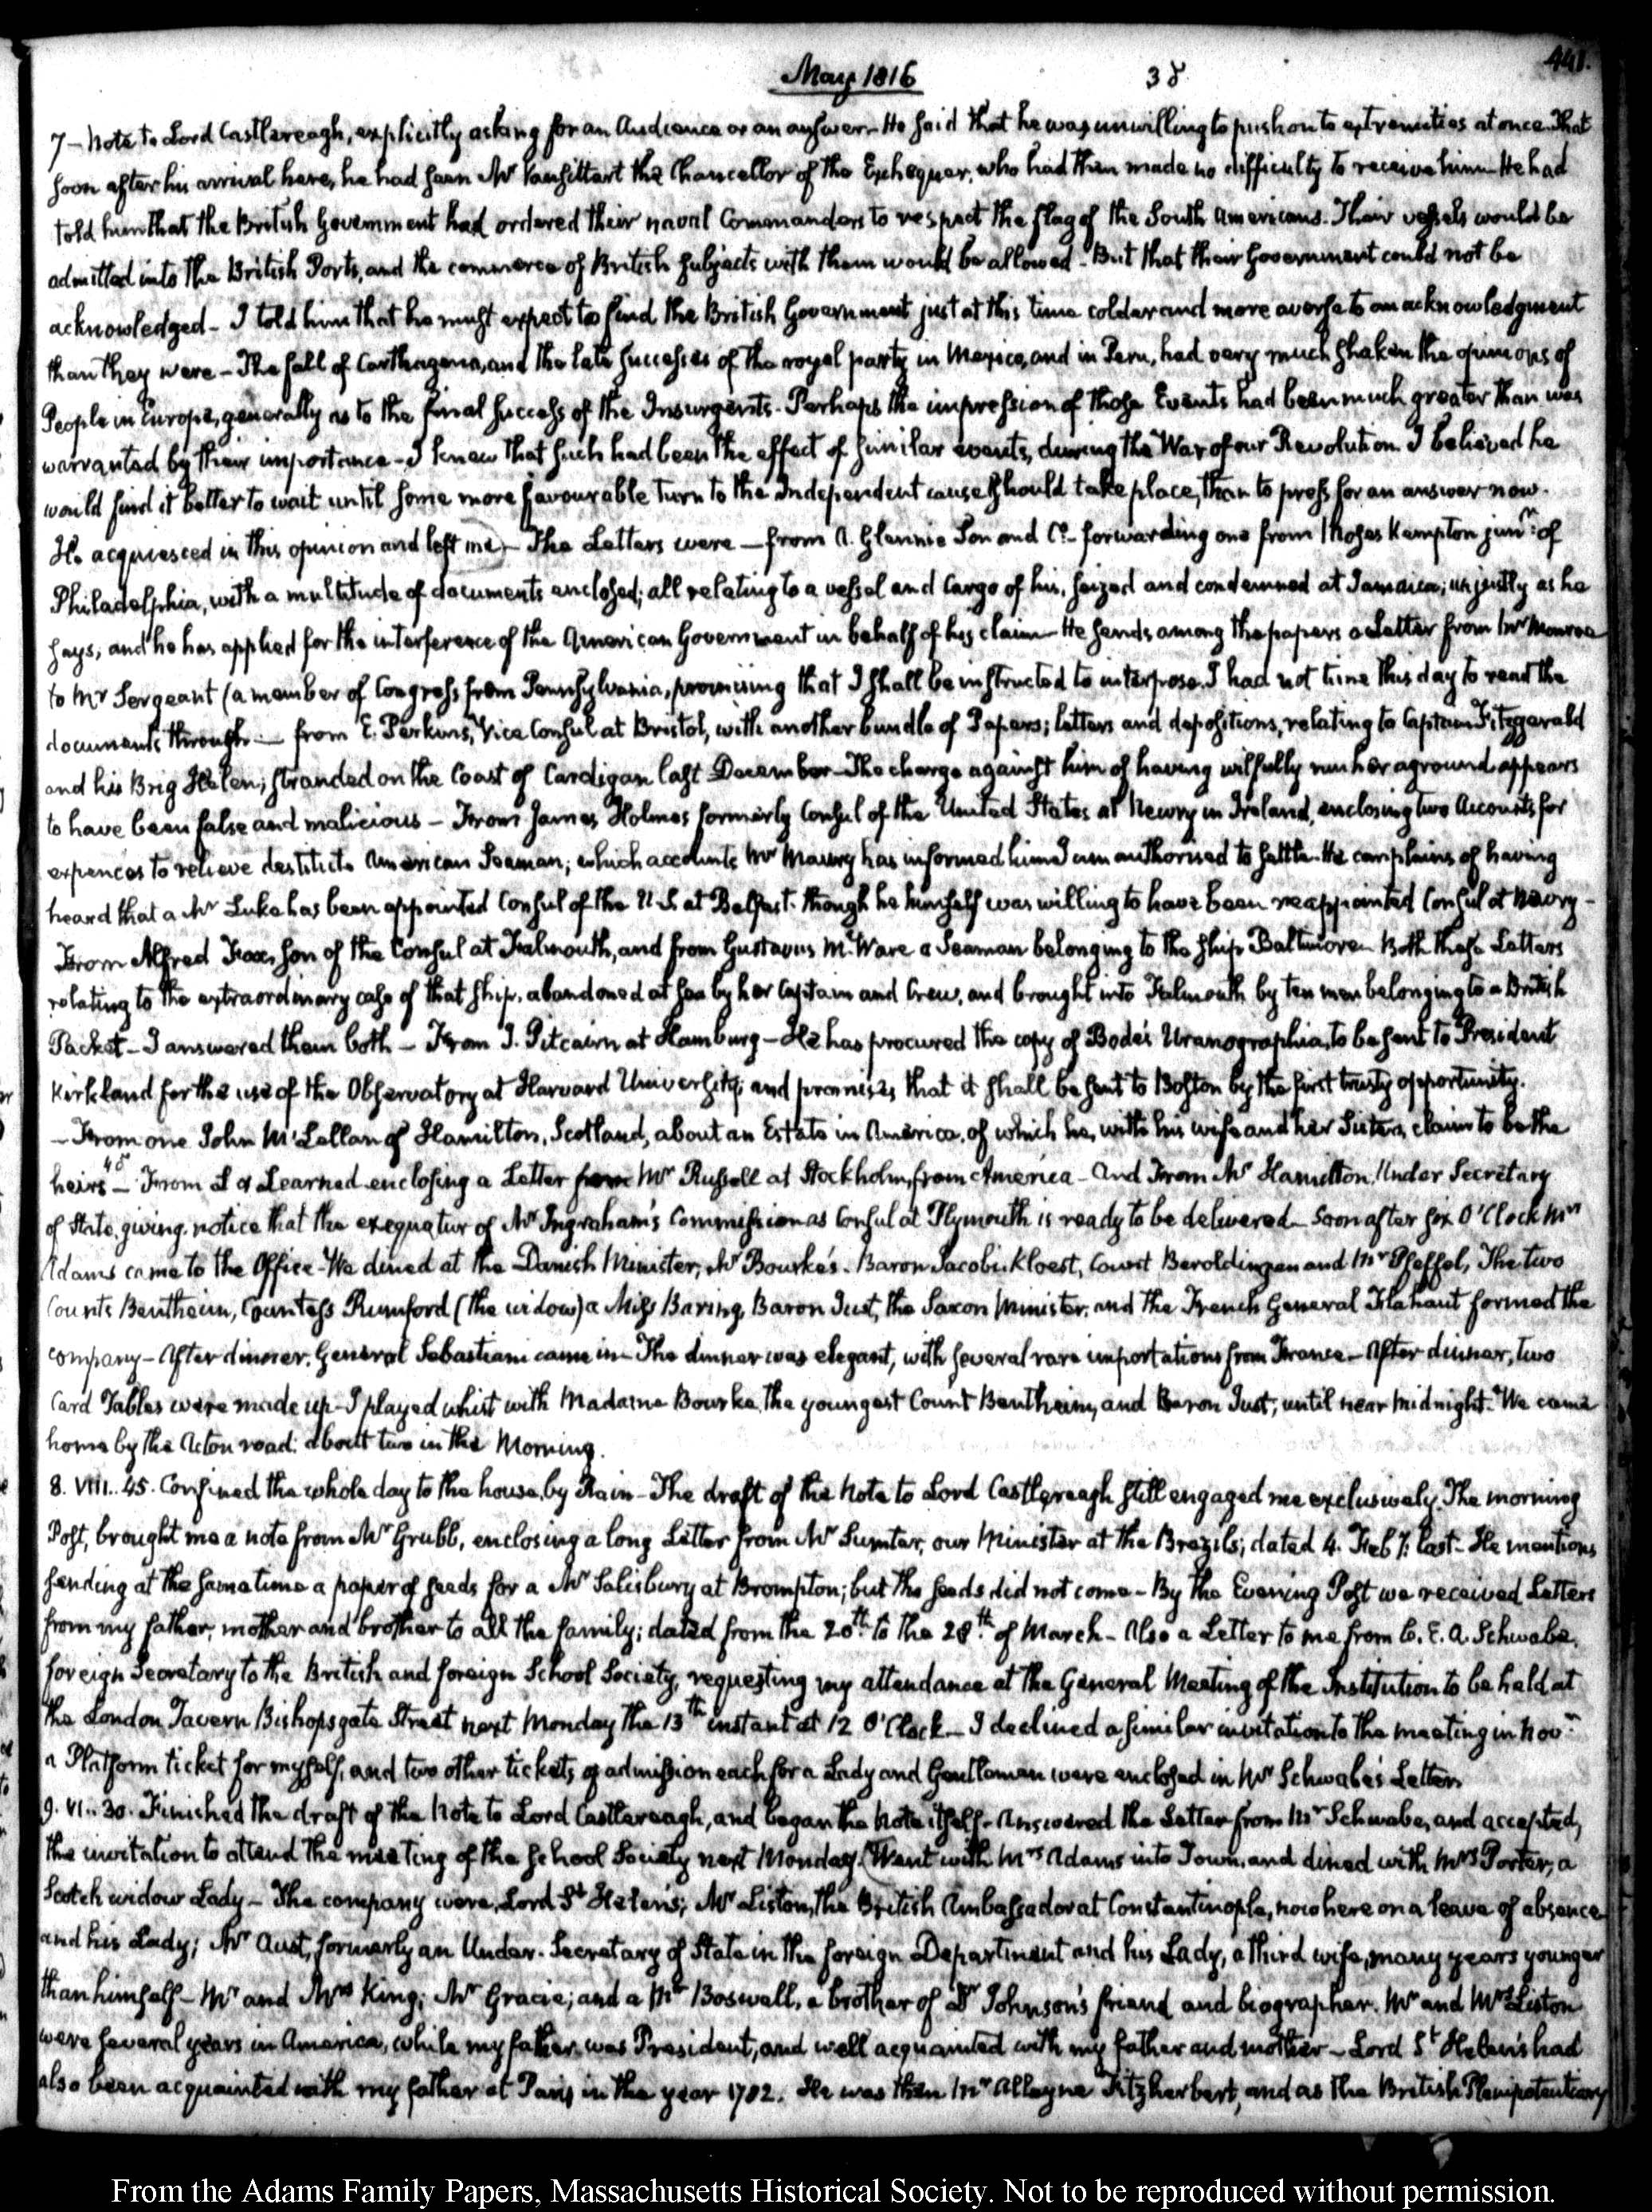 May 1816
38
441.
7 – Note to Lord Castlereagh, explicitly asking for an Audience or an answer – He said that he was unwilling to push on to extremities at once. That
soon after his arrival here, he had seen Mr Vansittart the Chancellor of the Exchequer, who had then made no difficulty to receive him – He had
told him that the British Government had ordered their naval Commanders to respect the flag of the South Americans. Their vessels would be
admitted into the British Ports, and the commerce of British subjects with them would be allowed – But that their Government could not be
acknowledged – I told him that he must expect to find the British Government just at this time colder and more averse to an acknowledgment
than they were – The fall of Carthagena, and the late successes of the royal party in Mexico, and in Peru, had very much shaken the opinions of
People in Europe, generally as to the final success of the Insurgents – Perhaps the impression of those Events had been much greater than was
warranted by their importance – I knew that such had been the effect of similar events, during the War of our Revolution. I believed he
would find it better to wait until some more favourable turn to the Independent cause should take place, than to press for an answer now.
He acquiesced in this opinion and left me – The Letters were – from A. Glennie Son and Co – forwarding one from Moses Kempton junr. of
Philadelphia, with a multitude of documents enclosed; all relating to a vessel and Cargo of his, seized and condemned at Jamaica; unjustly as he
says, and he has applied for the interference of the American Government in behalf of his claim – He sends among the papers a Letter from Mr Monroe
to Mr Sergeant (a member of Congress from Pennsylvania, promising that I shall be instructed to interpose. I had not time this day to read the
documents through – from E. Perkins, Vice Consul at Bristol, with another bundle of Papers; letters and depositions, relating to Captain Fitzgerald
and his Brig Helen, stranded on the Coast of Cardigan last December – The charge against him of having wilfully run her aground appears
to have been false and malicious – From James Holmes formerly Consul of the United States at Newry in Ireland, enclosing two Accounts for
expences to relieve destitute American Seamen; which accounts Mr Maury has informed him I am authorised to settle. He complains of having
heard that a Mr Luke has been appointed Consul of the U.S. at Belfast. though he himself was willing to have been reappointed Consul at Newry –
From Alfred Fox, son of the Consul at Falmouth, and from Gustavus M. Ware a Seaman belonging to the ship Baltimore. Both these Letters
relating to the extraordinary case of that ship, abandoned at sea by her Captain and Crew, and brought into Falmouth by ten men belonging to a British
Packet – I answered them both – From J. Pitcairn at Hamburg – He has procured the copy of Bode's Uranographia, to be sent to President
Kirkland for the use of the Observatory at Harvard University; and promises that it shall be sent to Boston by the first trusty opportunity.
– From one John McLellan of Hamilton, Scotland, about an Estate in America, of which he, with his wife and her Sisters, claim to be the
heirs – From Learned enclosing a Letter from Mr Russell at Stockholm, from America – And From Mr Hamilton, Under Secretary
of State, giving notice that the exequatur of Mr Ingraham's Commission as Consul at Plymouth is ready to be delivered – Soon after six O'Clock Mrs
Adams came to the Office – We dined at the Danish Minister, Mr Bourke's. Baron Jacobi Kloest, Count Beroldingen and Mr Pfeffel, The two
Counts Bentheim, Countess Rumford (the widow) a Miss Baring, Baron Just, the Saxon Minister, and the French General Flahaut formed the
company – After dinner, General Sebastiani came in – The dinner was elegant, with several rare importations from France – After dinner, two
Card Tables were made up – I played whist with Madame Bourke, the youngest Count Bentheim, and Baron Just, until near midnight. We came
home by the Acton road. about two in the Morning.
8. VIII..45. Confined the whole day to the house, by Rain – The draft of the Note to Lord Castlereagh still engaged me exclusively. The morning
Post, brought me a note from Mr Grubb, enclosing a long Letter from Mr Sumter, our Minister at the Brazils; dated 4. Feby. last – He mentions
sending at the same time a paper of seeds for a Mr Salisbury at Brompton; but the seeds did not come – By the Evening Post we received Letters
from my father, mother and brother to all the family; dated from the 20th to the 28th of March – Also a Letter to me from C. E. A. Schwabe,
foreign Secretary to the British and foreign School Society, requesting my attendance at the General Meeting of the Institution to be held at
the London Tavern Bishopsgate Street next Monday the 13th instant at 12 O'Clock – I declined a similar invitation to the meeting in Novr
a Platform ticket for myself, and two other tickets of admission each for a Lady and Gentleman were enclosed in Mr Schwabe's Letter.
9. VI..30. Finished the draft of the Note to Lord Castlereagh, and began the Note itself – Answered the Letter from Mr Schwabe, and accepted,
the invitation to attend the meeting of the School Society next Monday. Went with Mrs Adams into Town, and dined with Mrs Porter, a
Scotch widow Lady – The company were, Lord St Helen's; Mr Liston, the British Ambassador at Constantinople, now here on a leave of absence
and his Lady; Mr Aust, formerly an Under-Secretary of State in the foreign Department and his Lady, a third wife, many years younger
than himself – Mr and Mrs King; Mr Gracie; and a Mr Boswell, a brother of Dr Johnson's friend and biographer. Mr and Mrs Liston
were several years in America, while my father was President, and well acquainted with my father and mother – Lord St Helen's had
also been acquainted with my father at Paris in the year 1782. He was then Mr Alleyne Fitzherbert, and as the British Plenipotentiary
From the Adams Family Papers, Massachusetts Historical Society. Not to be reproduced without permission.